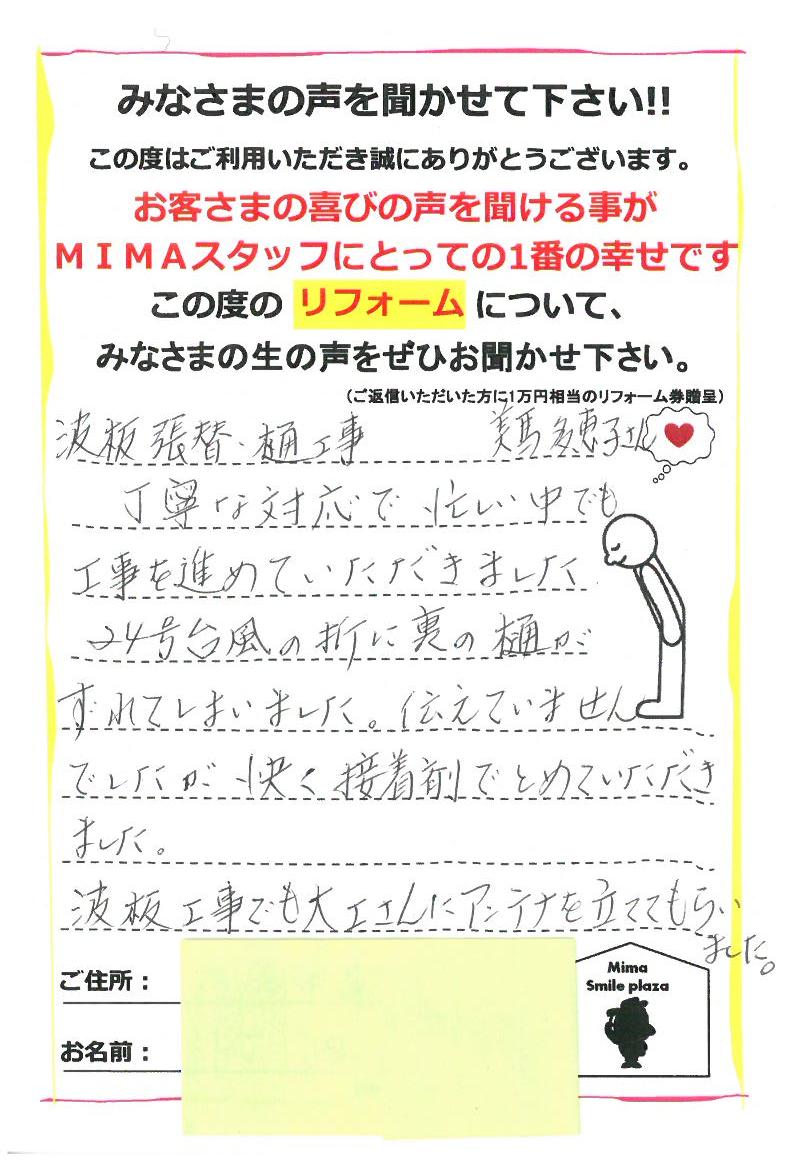 みなさまの声を聞かせて下さい!!
この度はご利用いただき誠にありがとうございます。
お客さまの喜びの声を聞ける事が
ＭＩＭＡスタッフにとっての1番の幸せです
この度の リフォーム について、
みなさまの生の声をぜひお聞かせ下さい。
（ご返信いただいた方に1万円相当のリフォーム券贈呈）
波板張替・樋工事 美馬多恵子さん
丁寧な対応で忙しい中でも
工事を進めていただきました
24号台風の折に裏の樋が
ずれてしまいました。伝えていません
でしたが快く接着剤でとめていただき
ました。
波板工事でも大工さんにアンテナを立ててもらい
ました。
ご住所：
お名前：
Mima
Smile plaza